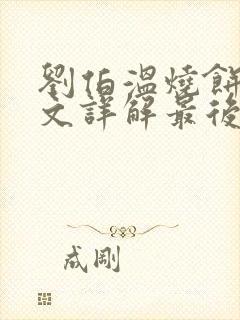 劉伯溫燒餅
文詳解最後
成剛